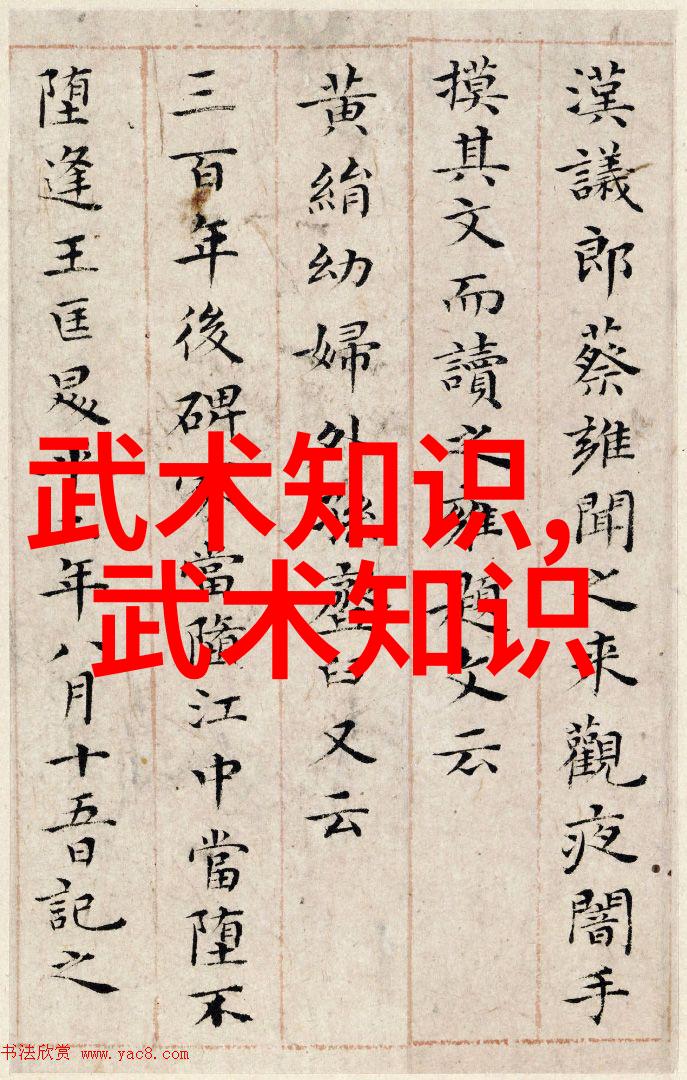 漢議郎蔡雍聞之来觀夜闇手
摸其文而讀之雍題文云
黃絹幼婦外孫臼又云
三百年後碑當墮江中當堕不
堕逢王匡年八月十五日記之
武术知识,
武术知识
书法欣赏 www.yac8.com